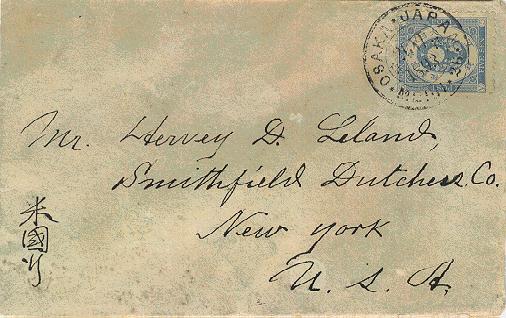 OSAKA JAPAN
Mr. Hervey D. Leland,
Smithfield Dutchess Co.
New York
U. S. A.
米國行